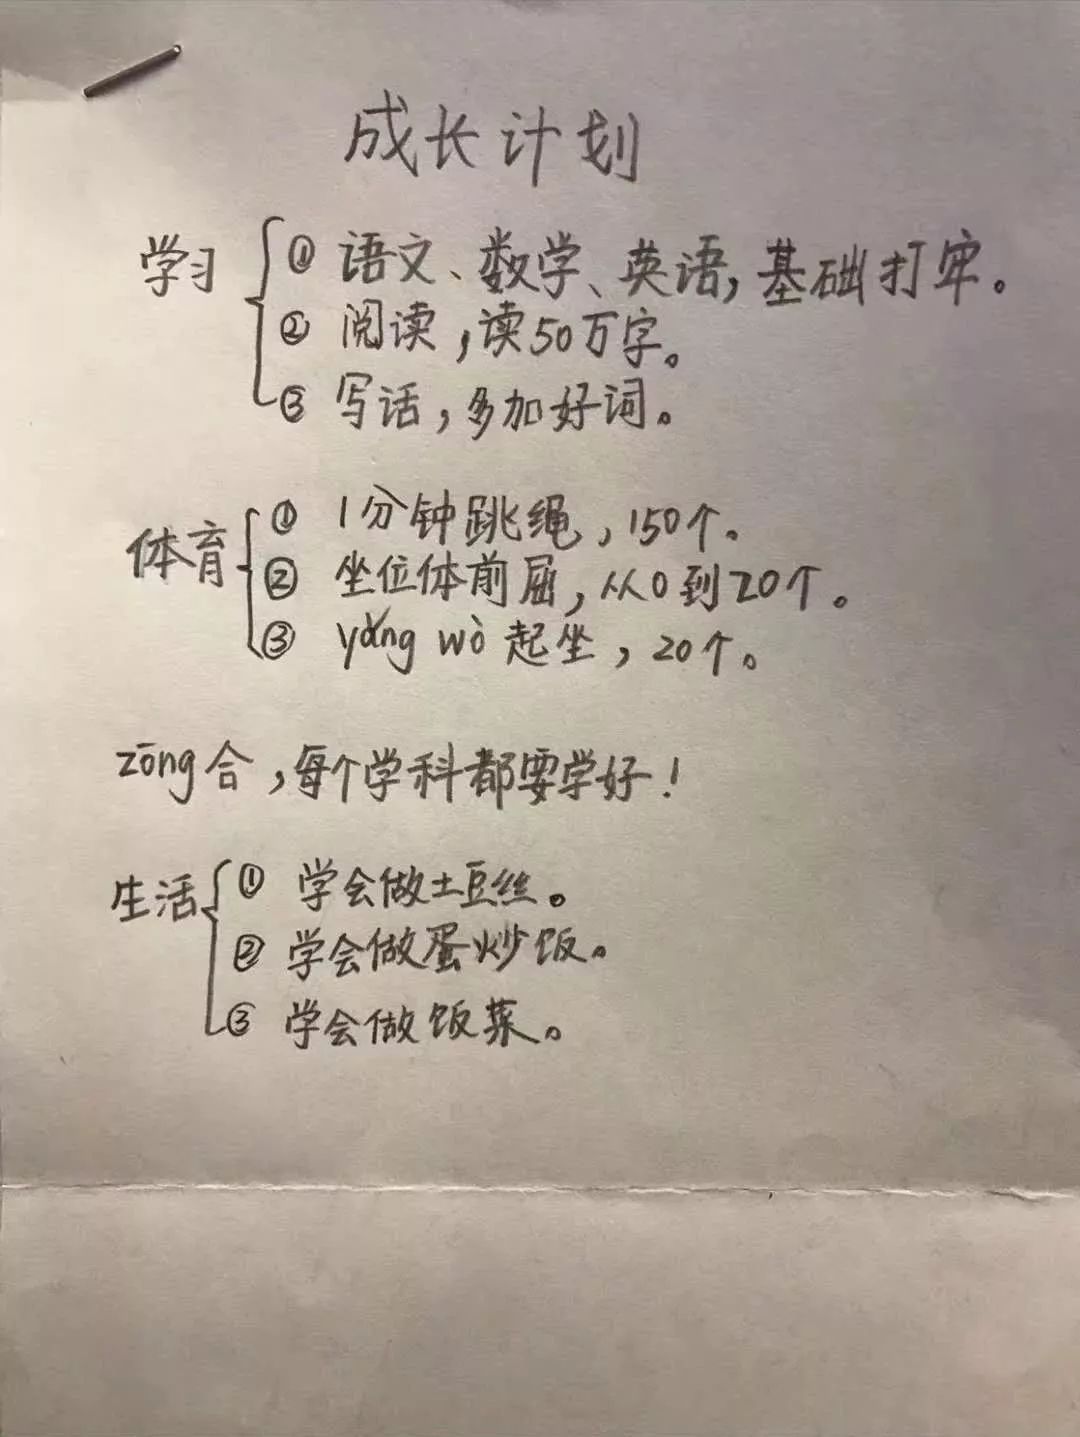 成长计划
学习 ① 语文、数学、英语,基础打牢。
② 阅读,读50万字。
③ 写话,多加好词。
体育 ① 1分钟跳绳,150个。
② 坐位体前屈,从0到20个。
③ yǎng wò 起坐,20个。
zōng合,每个学科都要学好!
生活 ① 学会做土豆丝。
② 学会做蛋炒饭。
③ 学会做饭菜。